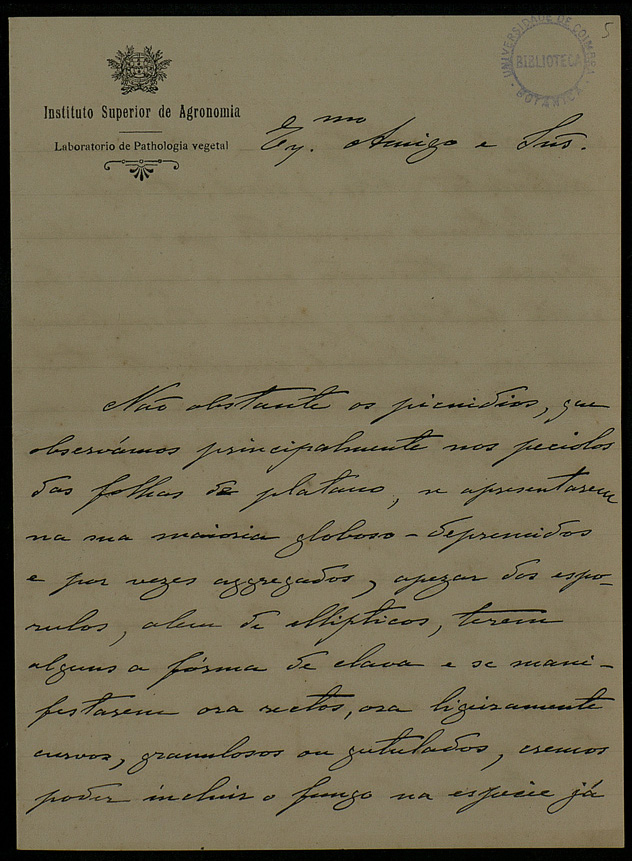 5
UNIVERSIDADE DE COIMBRA
BIBLIOTECA
BOTANICA
Instituto Superior de Agronomia
Laboratorio de Pathologia vegetal
Ex.mo Amigo e Snr.
Não obstante os picnidios, que
observámos principalmente nos peciolos
das folhas de platano, se apresentarem
na sua maioria globoso-deprimidos
e por vezes aggregados, apezar dos espo-
rulos, alem de ellipticos, terem
alguns a fórma de clava e se mani-
festarem ora rectos, ora ligeiramente
curvos, granulosos ou gutulados, cremos
poder incluir o fungo na especie já